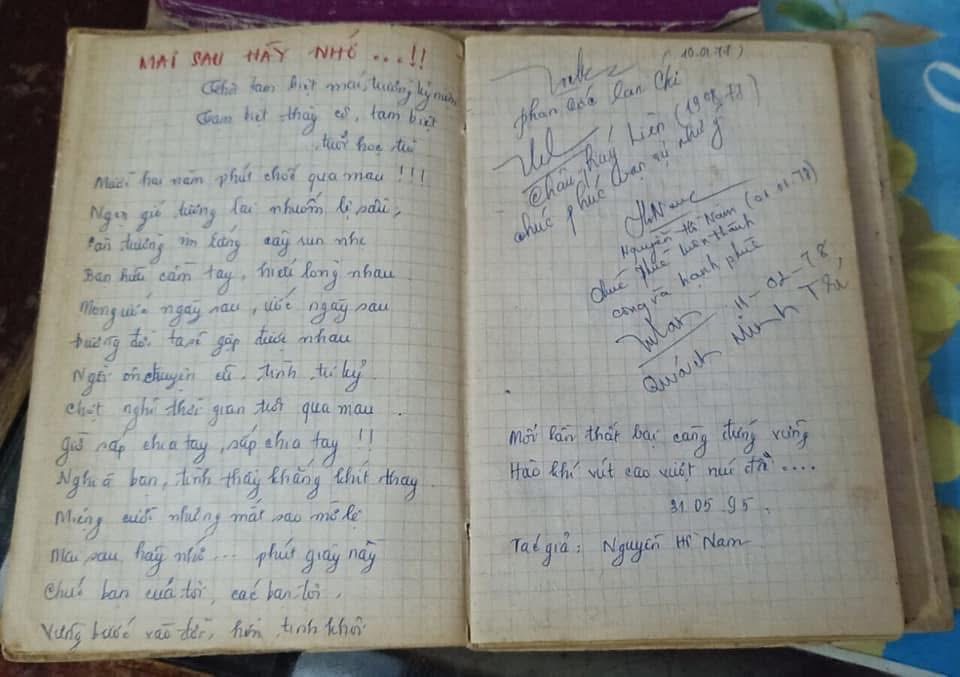 MAI SAU HÃY NHỚ...!!
tạm biệt mái trường kỷ niệm
Tạm biệt thầy cô, tạm biệt
tuổi học trò
Mười hai năm phút chốt qua mau !!!
Ngọn gió tương lai nhuốm lệ sầu,
im lắng
Bạn hữu cầm tay, hiểu lòng nhau
Mong ước ngày sau, ước ngày sau
Đường đời ta sẽ gặp được nhau
Ngồi ôn chuyện cũ, tình tri kỷ
Chợt nghĩ thời gian trôi qua mau.
giờ sắp chia tay, sắp chia tay !!
Nghĩa bạn, tình thầy khắng khít thay.
Miệng cười nhưng mắt sao mờ lệ
Mai sau hãy nhớ ... phút giây này
Chúc bạn của tôi, các bạn tôi,
Vững bước vào đời, hồn tinh khôi
10.01.78)
phan Lan Chi
Châu Thúy Liên (19.01.78)
chúc phúc bạn sự như ý
Nguyễn Hi Nam (01.01.78)
chúc thành
công và hạnh phúc
11-02-78,
Quách Minh
Mỗi lần thất bại càng đứng vững
Hào khí vút cao vượt núi đồi ....
31.05.95.
Tác giả: Nguyễn Hi Nam